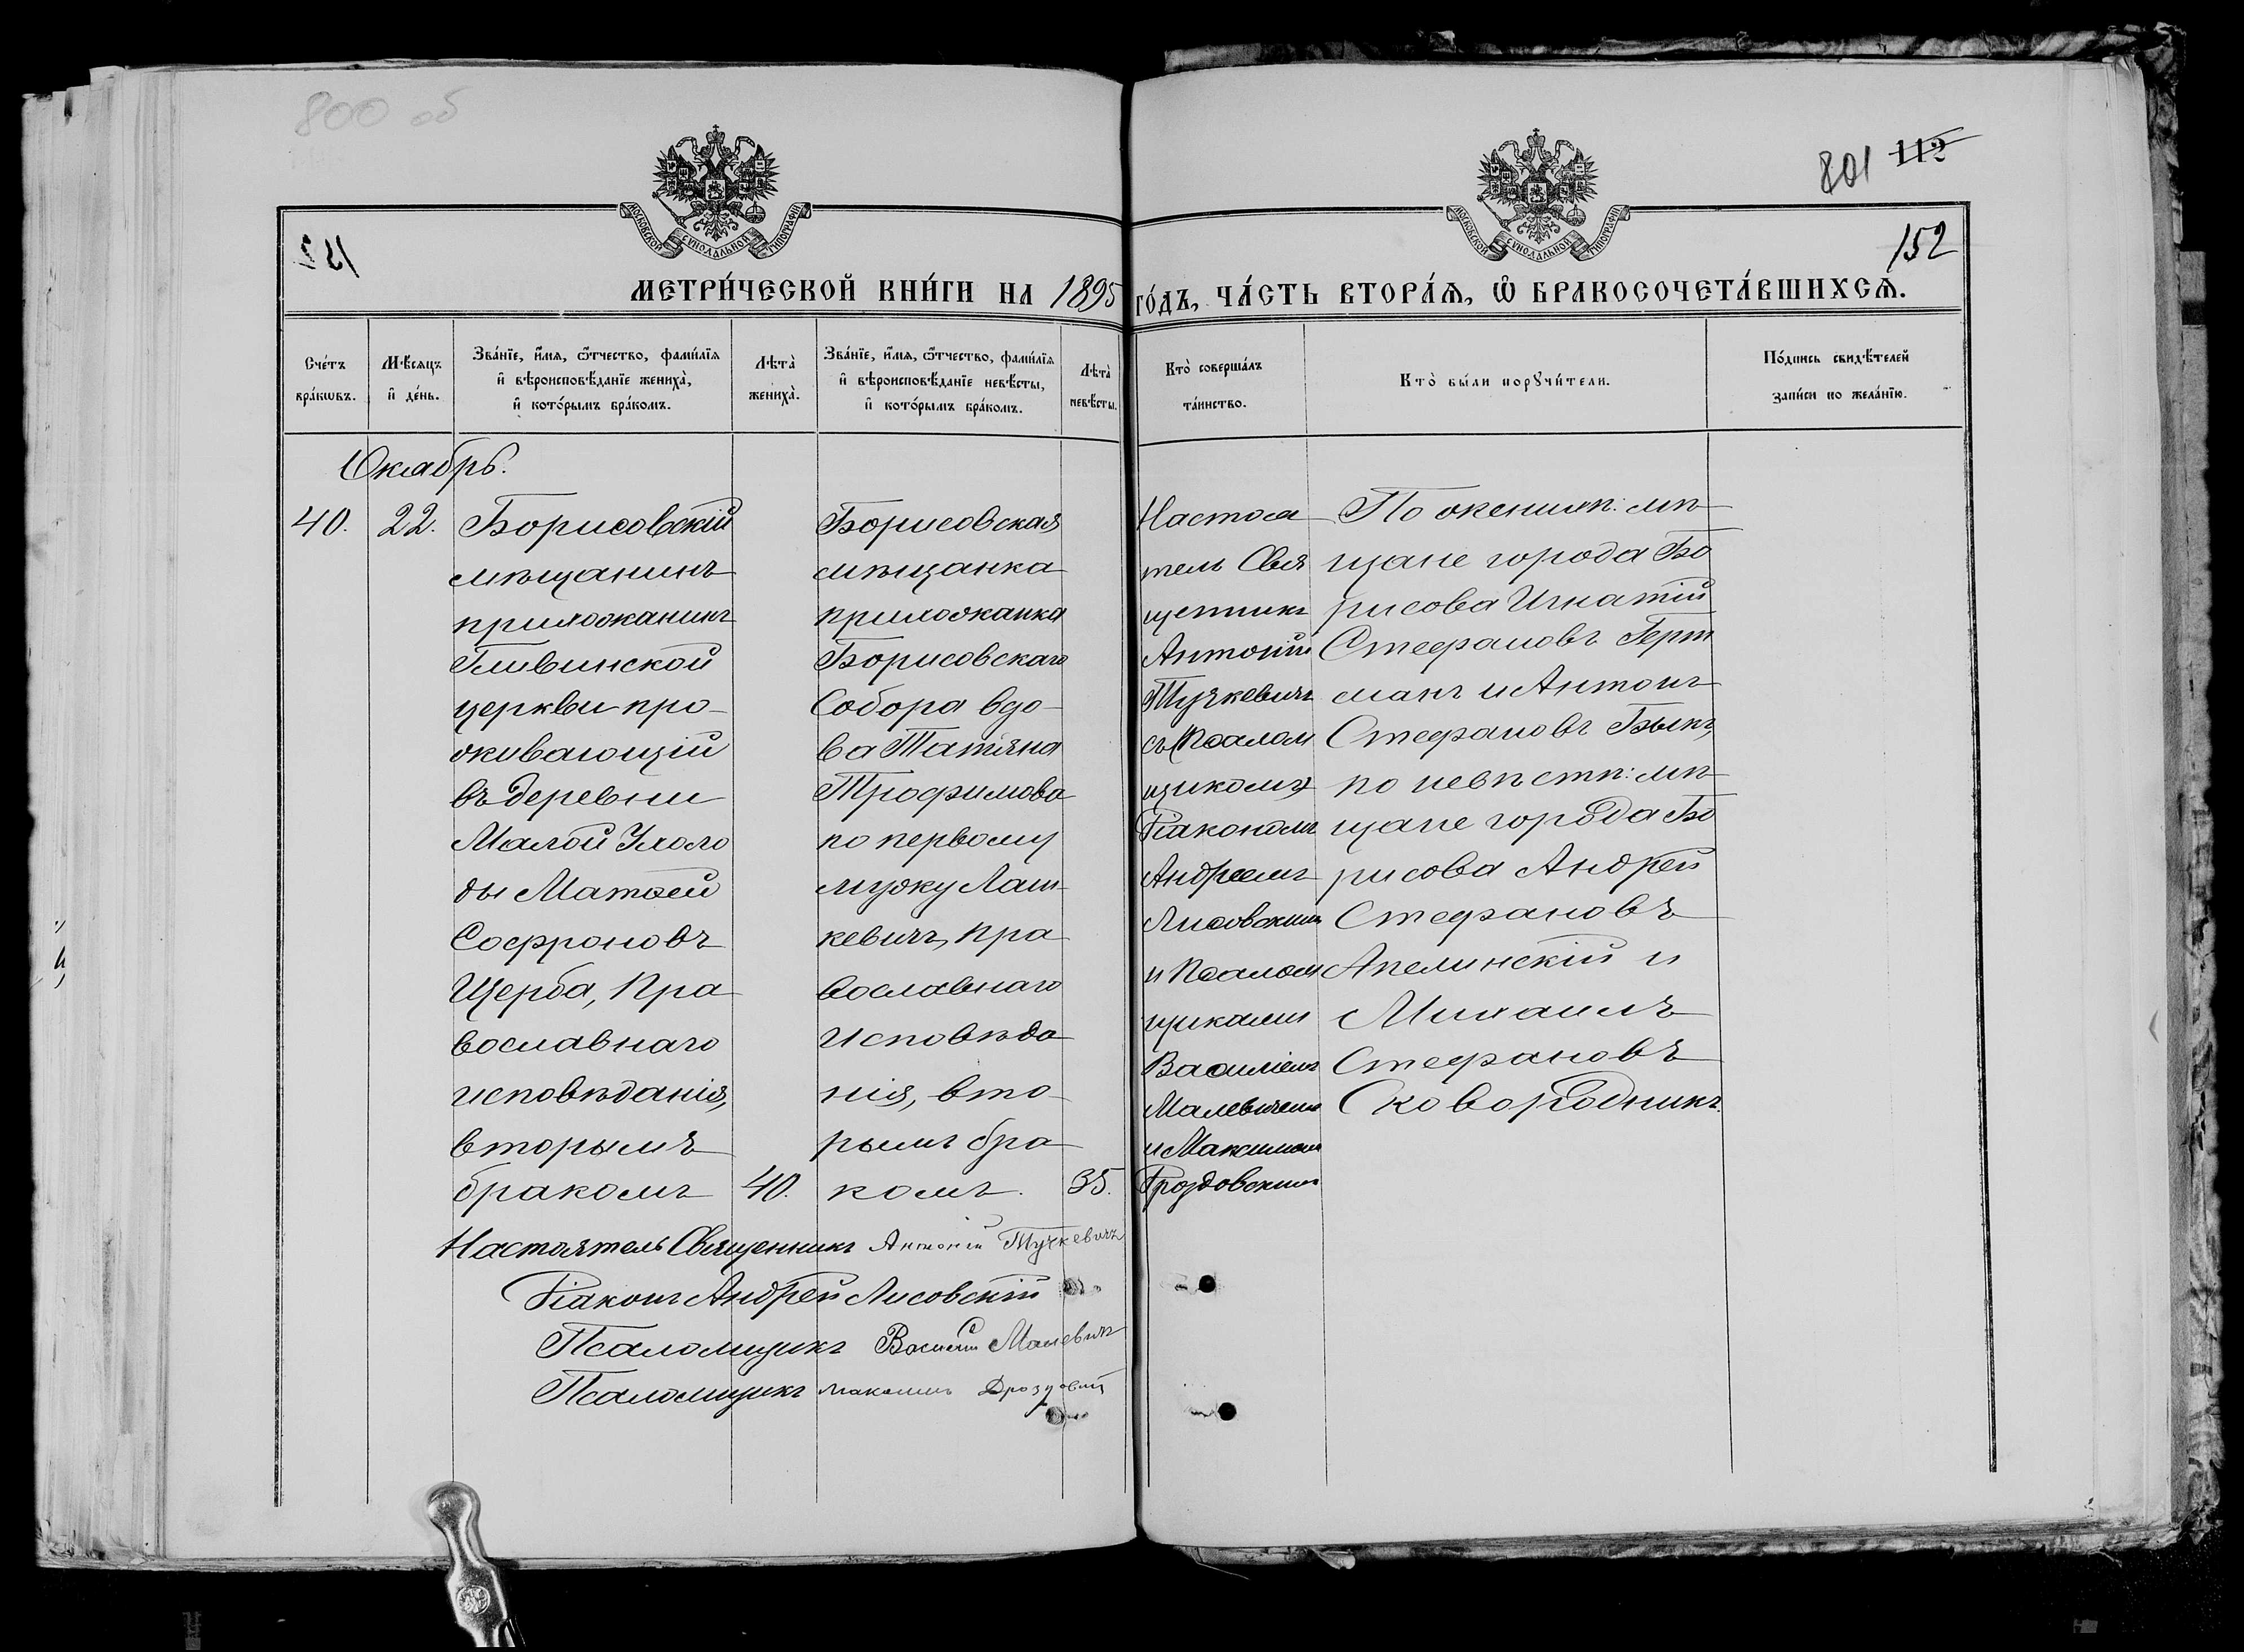 800 об
801 112
МОСКОВСКОЙ СѴНОДАЛЬНОЙ ТИПОГРАФІИ
МОСКОВСКОЙ СѴНОДАЛЬНОЙ ТИПОГРАФІИ
152
МЕТРИ́ЧЕСКОЙ КНИ́ГИ НА 1895 ГО́ДЪ, ЧА́СТЬ ВТОРА́Ѧ, Ѽ БРАКОСОЧЕТА́ВШИХСѦ.
Сче́тъ бра́кѡвъ.
Мѣ́сяцъ и҆ де́нь.
Зва́нїе, и҆́мѧ, ѻ҆́тчество, фами́лїѧ
и҆ вѣроисповѣ́данїе жениха̀,
и҆ кото́рымъ бра́комъ.
Лѣта̀ жениха̀.
Зва́нїе, и҆́мѧ, ѻ҆́тчество, фами́лїѧ
и҆ вѣроисповѣ́данїе невѣ́сты,
и҆ кото́рымъ бра́комъ.
Лѣта̀ невѣ́сты.
Кто̀ соверша́лъ
та́инство.
Кто̀ бы́ли порꙋчи́тели.
По́дпись свидѣ́телей
за́писи по жела́нїю.
Октябрь.
40.
22.
Борисовскій
мѣщанинъ
прихожанинъ
Гливинской
церкви про-
живающій
въ деревни
Малой Ухоло
ды Матѳей
Софроновъ
Щерба, Пра
вославнаго
исповѣданія,
вторымъ
бракомъ
40.
Борисовская
мѣщанка
прихожанка
Борисовскаго
Собора вдо-
ва Татіяна
Трофимова
по первому
мужу Лаш-
кевичъ, пра
вославнаго
исповѣда
нія, вто-
рымъ бра
комъ.
35.
Настоя
тель Свя
щенникъ
Антоній
Тучкевичъ
съ Псалом
щикомъ
Діакономъ
Андреемъ
Лисовскимъ
и Псалом
щиками
Василіемъ
Малевичемъ
и Максимомъ
Дроздовскимъ
По женихѣ: мѣ-
щане города Бо
рисова Игнатій
Стефановъ Герт
манъ и Антонъ
Стефановъ Быкъ,
по невѣстѣ: мѣ-
щане города Бо
рисова Андрей
Стефановъ
Апелинскій и
Михаилъ
Стефановъ
Сковородникъ.
Настоятель Священникъ Антоній Тучкевичъ
Діаконъ Андрей Лисовскій
Псаломщикъ Василій Малевичъ
Псаломщикъ Максимъ